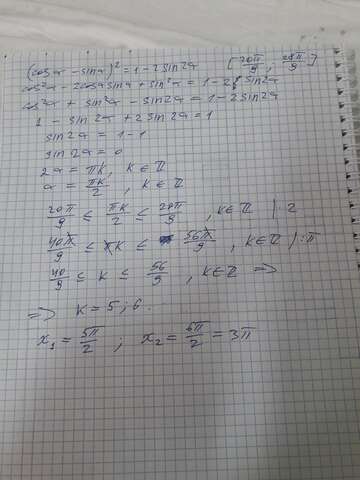 (cosa - sina)² = 1 - 2sin2a [20π/9, 28π/9]
cos²a - 2cosasina + sin²a = 1 - 2sin2a
cos²a + sin²a - sin2a = 1 - 2sin2a
1 - sin2a + 2sin2a = 1
sin2a = 1 - 1
sin2a = 0
2a = πk, k ∈ ℤ
a = πk/2, k ∈ ℤ
20π/9 ≤ πk/2 ≤ 28π/9, k ∈ ℤ |·2
40π/9 ≤ πk ≤ 56π/9, k ∈ ℤ |:π
40/9 ≤ k ≤ 56/9, k ∈ ℤ =>
=> k = 5; 6.
x₁ = 5π/2; x₂ = 6π/2 = 3π